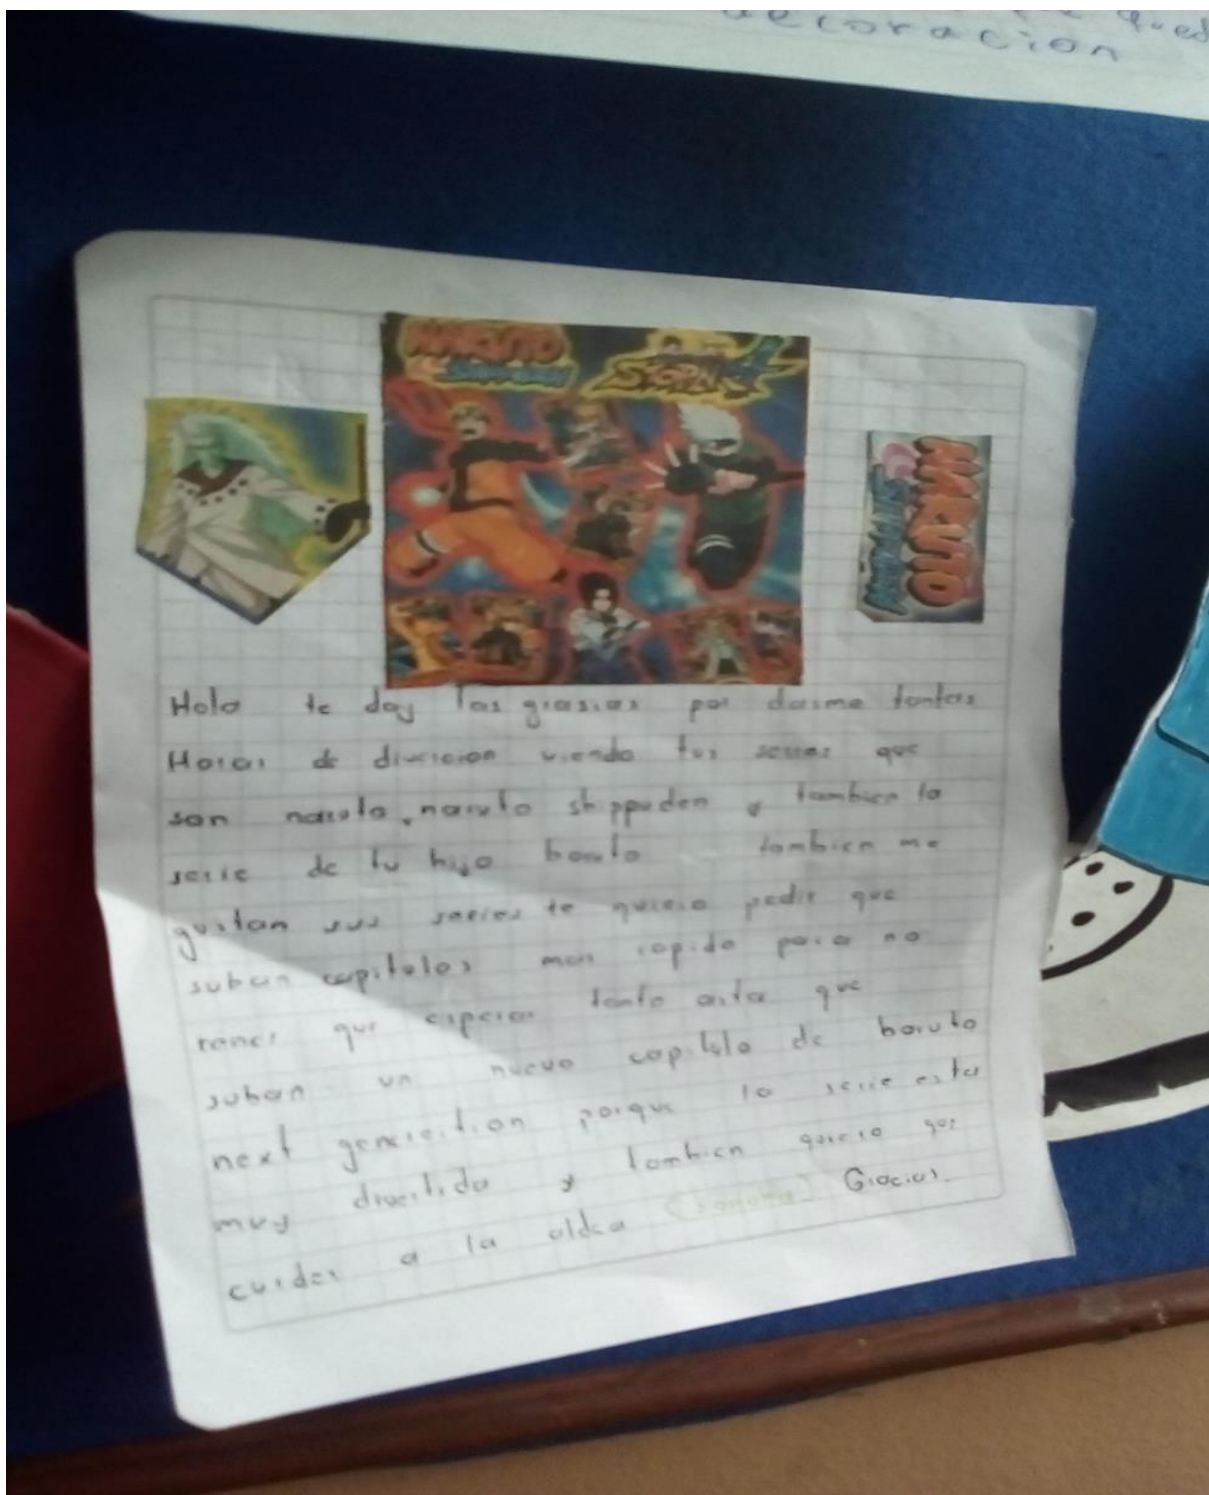 decoración
NARUTO
SHIPPUDEN
STORM 4
NARUTO
SHIPPUDEN
Hola te doy las grasias por darme tantas
Horas de divercion viendo tus series que
son naruto, naruto shippuden y tambien la
serie de tu hijo boruto tambien me
gustan sus series te quiero pedir que
suban capitolos mas rapido para no
tener que esperar tanto asta que
suban un nuevo capitolo de boruto
next genereition porque la serie esta
muy divertida y tambien quiero que
cuides a la aldea Gracias.